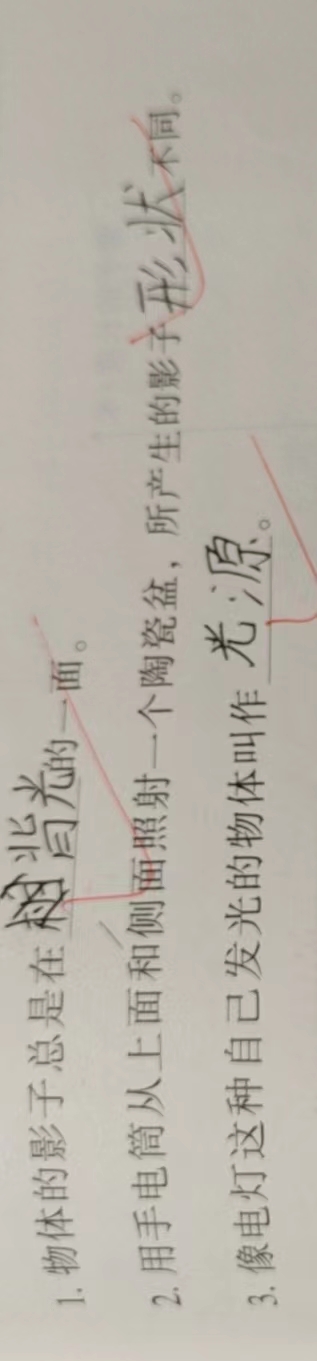 1. 物体的影子总是在背光的一面。
2. 用手电筒从上面和侧面照射一个陶瓷盆，所产生的影子形状不同。
3. 像电灯这种自己发光的物体叫作光源。